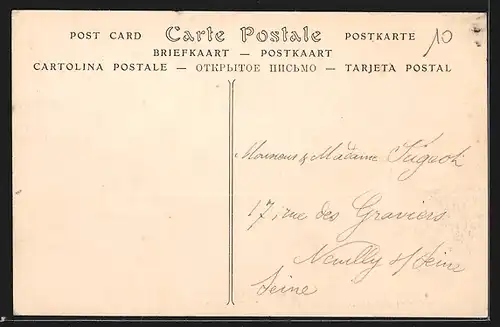 POST CARD Carte Postale POSTKARTE 10
BRIEFKAART — POSTKAART
CARTOLINA POSTALE — ОТКРЫТОЕ ПИСЬМО — TARJETA POSTAL
Monsieur & Madame
17, rue des Graviers
Neuilly s/ Seine
Seine